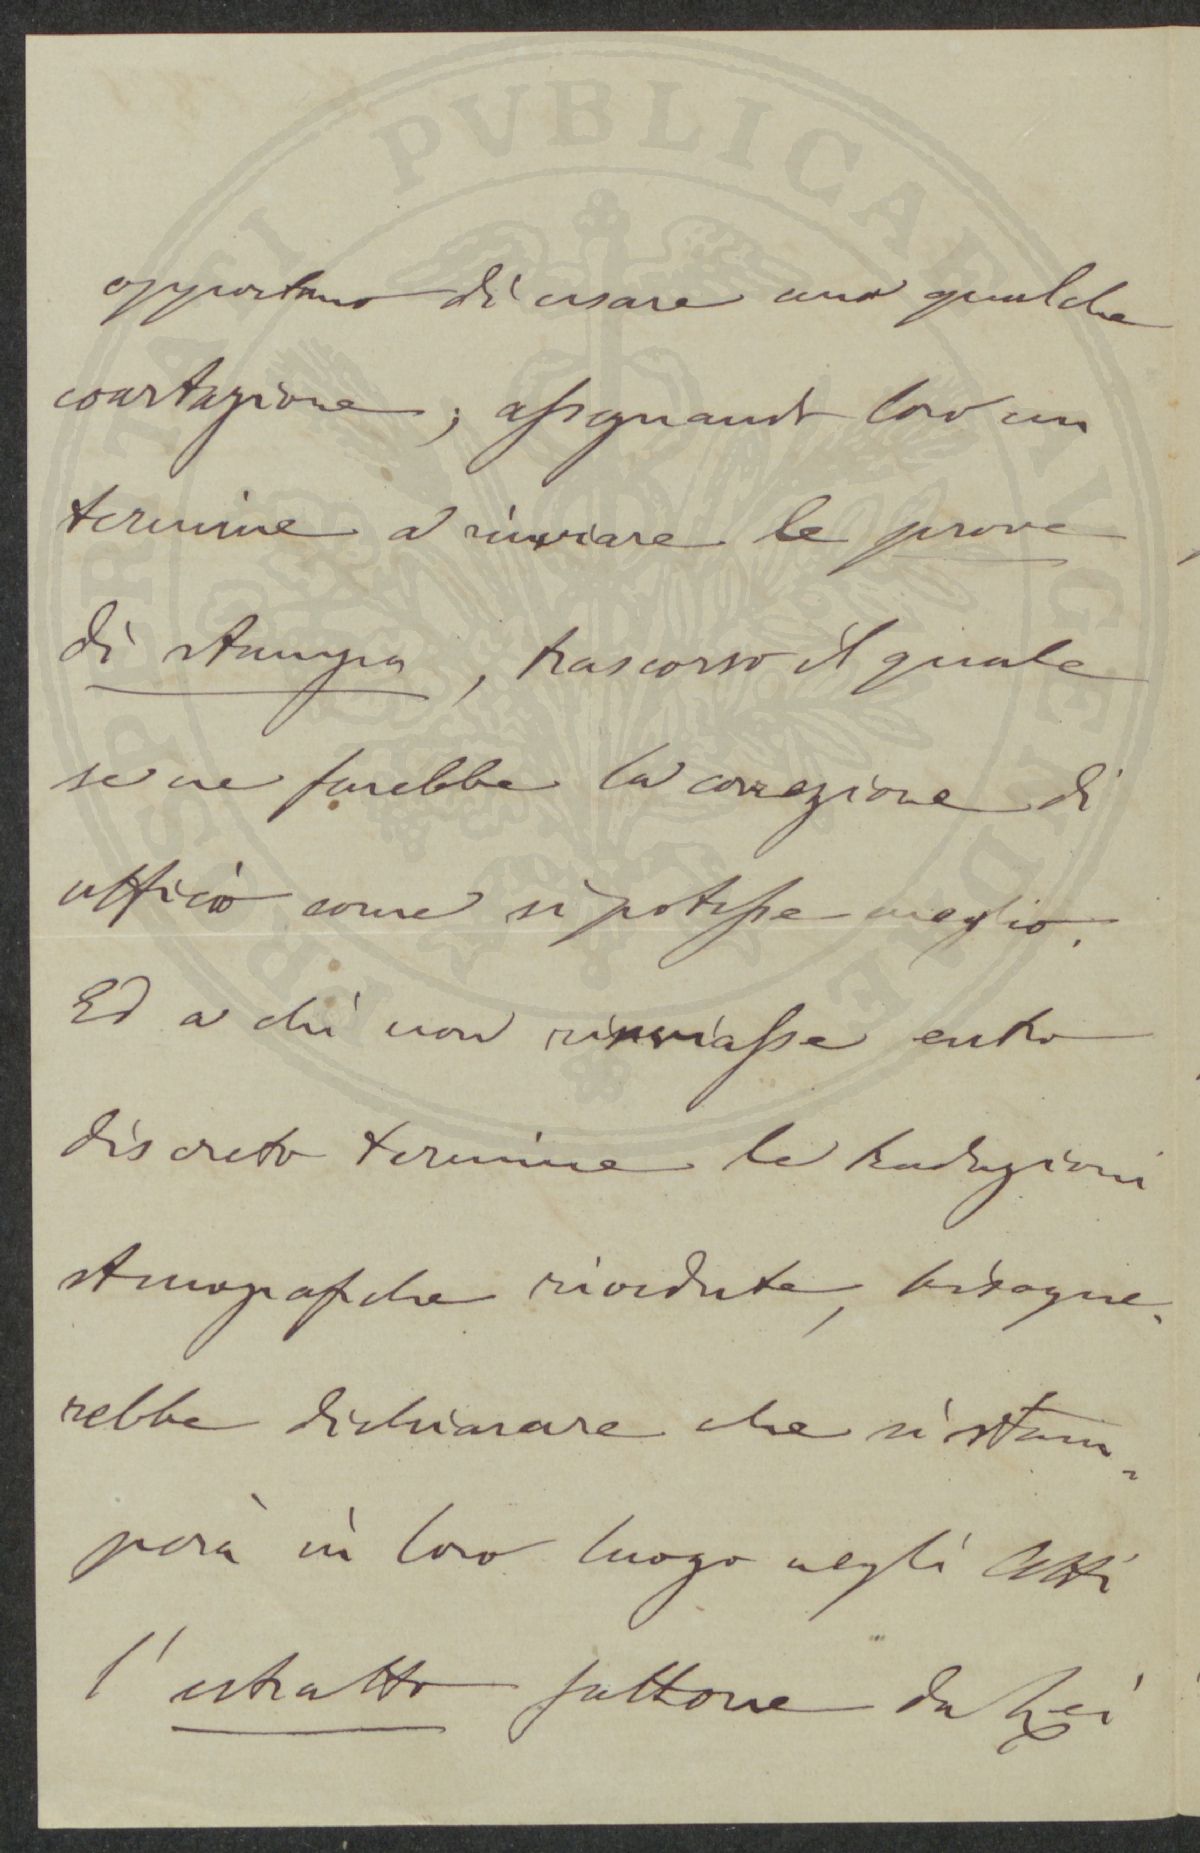 PROSPERITATI PVBLICAE AVGENDAE
opportuno di usare una qualche
coartazione; assegnando loro un
termine a rinviare le prove
di stampa, trascorso il quale
se ne farebbe la correzione di
ufficio come si potesse meglio.
Ed a chi non rinviasse entro
discreto termine le traduzioni
stenografiche rivedute, bisogne-
rebbe dichiarare che si stam-
perà in loro luogo negli Atti
l'estratto fattone da Lei